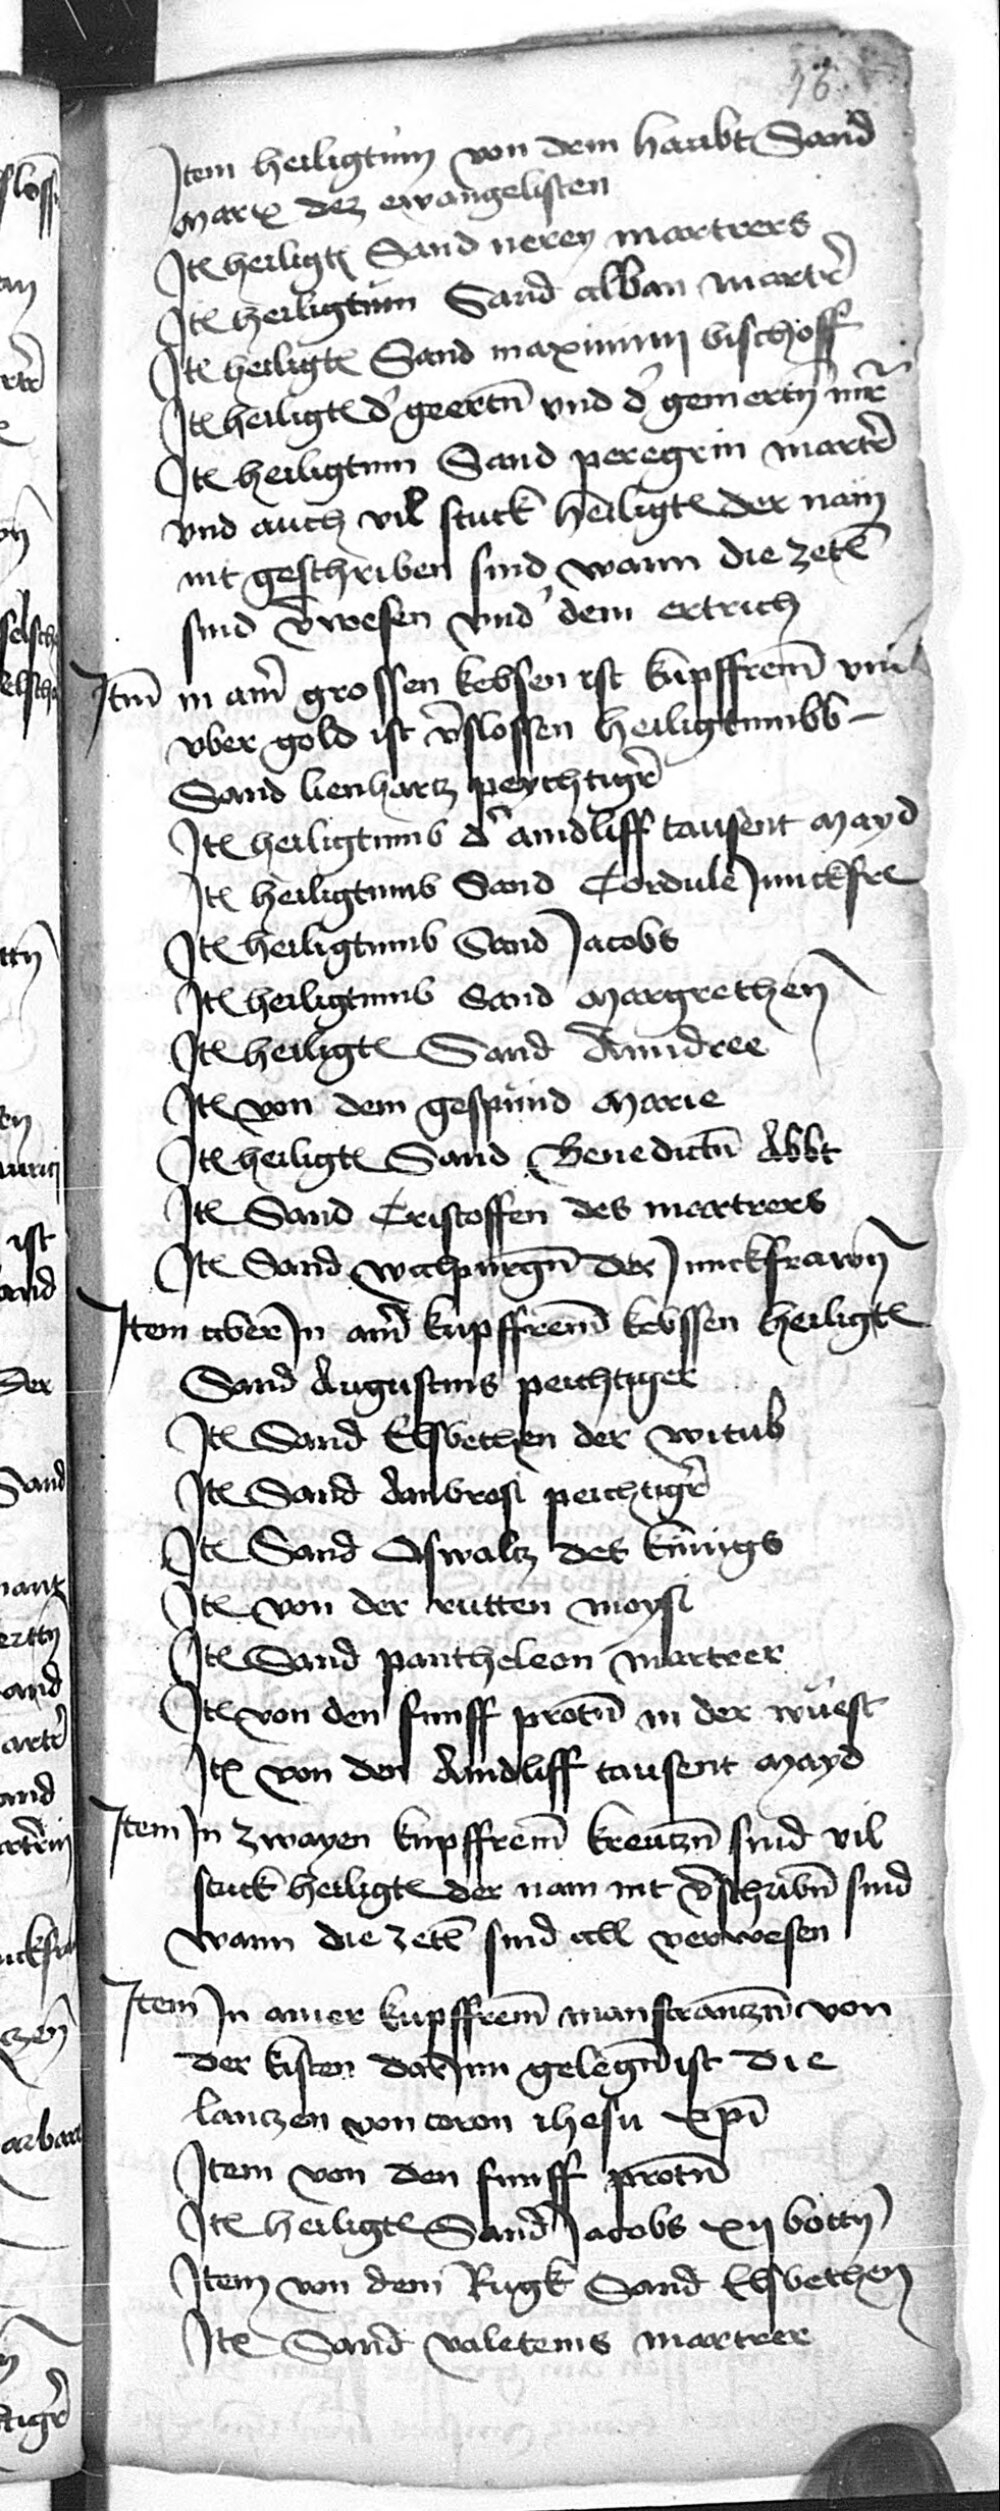 76
Item heiligtum von dem haubt Sand
Marx dez ewangelisten
Ite heiligte Sand nerey martrers
Ite heiligtum Sand alban martr̄
Ite heiligte Sand maximini bischoff
Ite heiligte d' geertn̄ vnd d' gemertn̄ mr̄
Ite heiligtum Sand peregrin martr̄
vnd auch vil stuck heiligte der nam
nit geschriben sind wann die zetl̄
sind v̄wesen vnd' dem ertrich
Itm̄ in am̄ grossen kebsen ist kupffrem̄ vnd
vber gold ist v̄slossen heiligtumbb
Sand lienhartz peychtigr̄
Ite heiligtumb d' aindliff tausent mayd
Ite heiligtumb Sand Cordule Junckfre
Ite heiligtumb Sand Jacobs
Ite heiligtumb Sand margrethen
Ite heiligte Sand Anndree
Ite von dem gespund marie
Ite heiligte Sand Benedictn̄ Abbt
Ite Sand Cristoffen des martrers
Ite Sand walpurgn̄ der Junckfrawn̄
Item aber In am̄ kupffrem̄ kebssen heiligte
Sand Augustins peichtiger
Ite Sand Elsbethen der witub
Ite Sand Ambrosi peichtigr̄
Ite Sand Oswaltz des künigs
Ite von der rutten moysi
Ite Sand pantheleon martrer
Ite von den funff protn̄ in der wüest
Ite von den Aindliff tausent mayd
Item In zwayen kupffrem̄ kreutzn̄ sind vil
stuck heiligte der nam nit v̄schribn̄ sind
wann die zetl̄ sind all verwesen
Item In ainer kupffrem̄ manstrantzn̄ von
der kisten dar Inn gelegn̄ ist die
lantzen von coron ihesu xp̄i
Item von den funff protn̄
Ite heiligte Sand Jacobs xij bottn̄
Item von dem Rugk Sand Elsbethen
Ite Sand valeteins martrer